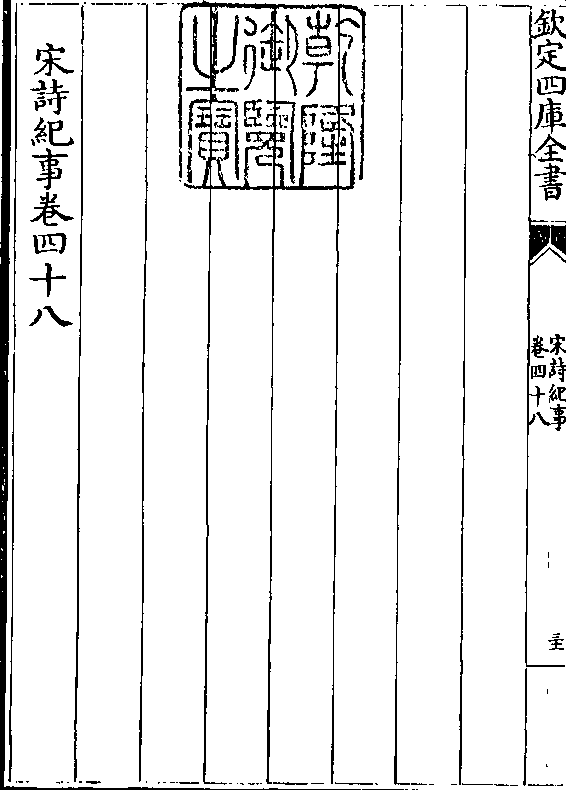 欽定四庫全書
宋詩紀事
卷四十八
乾隆
御覽
之寶
宋詩紀事卷四十八